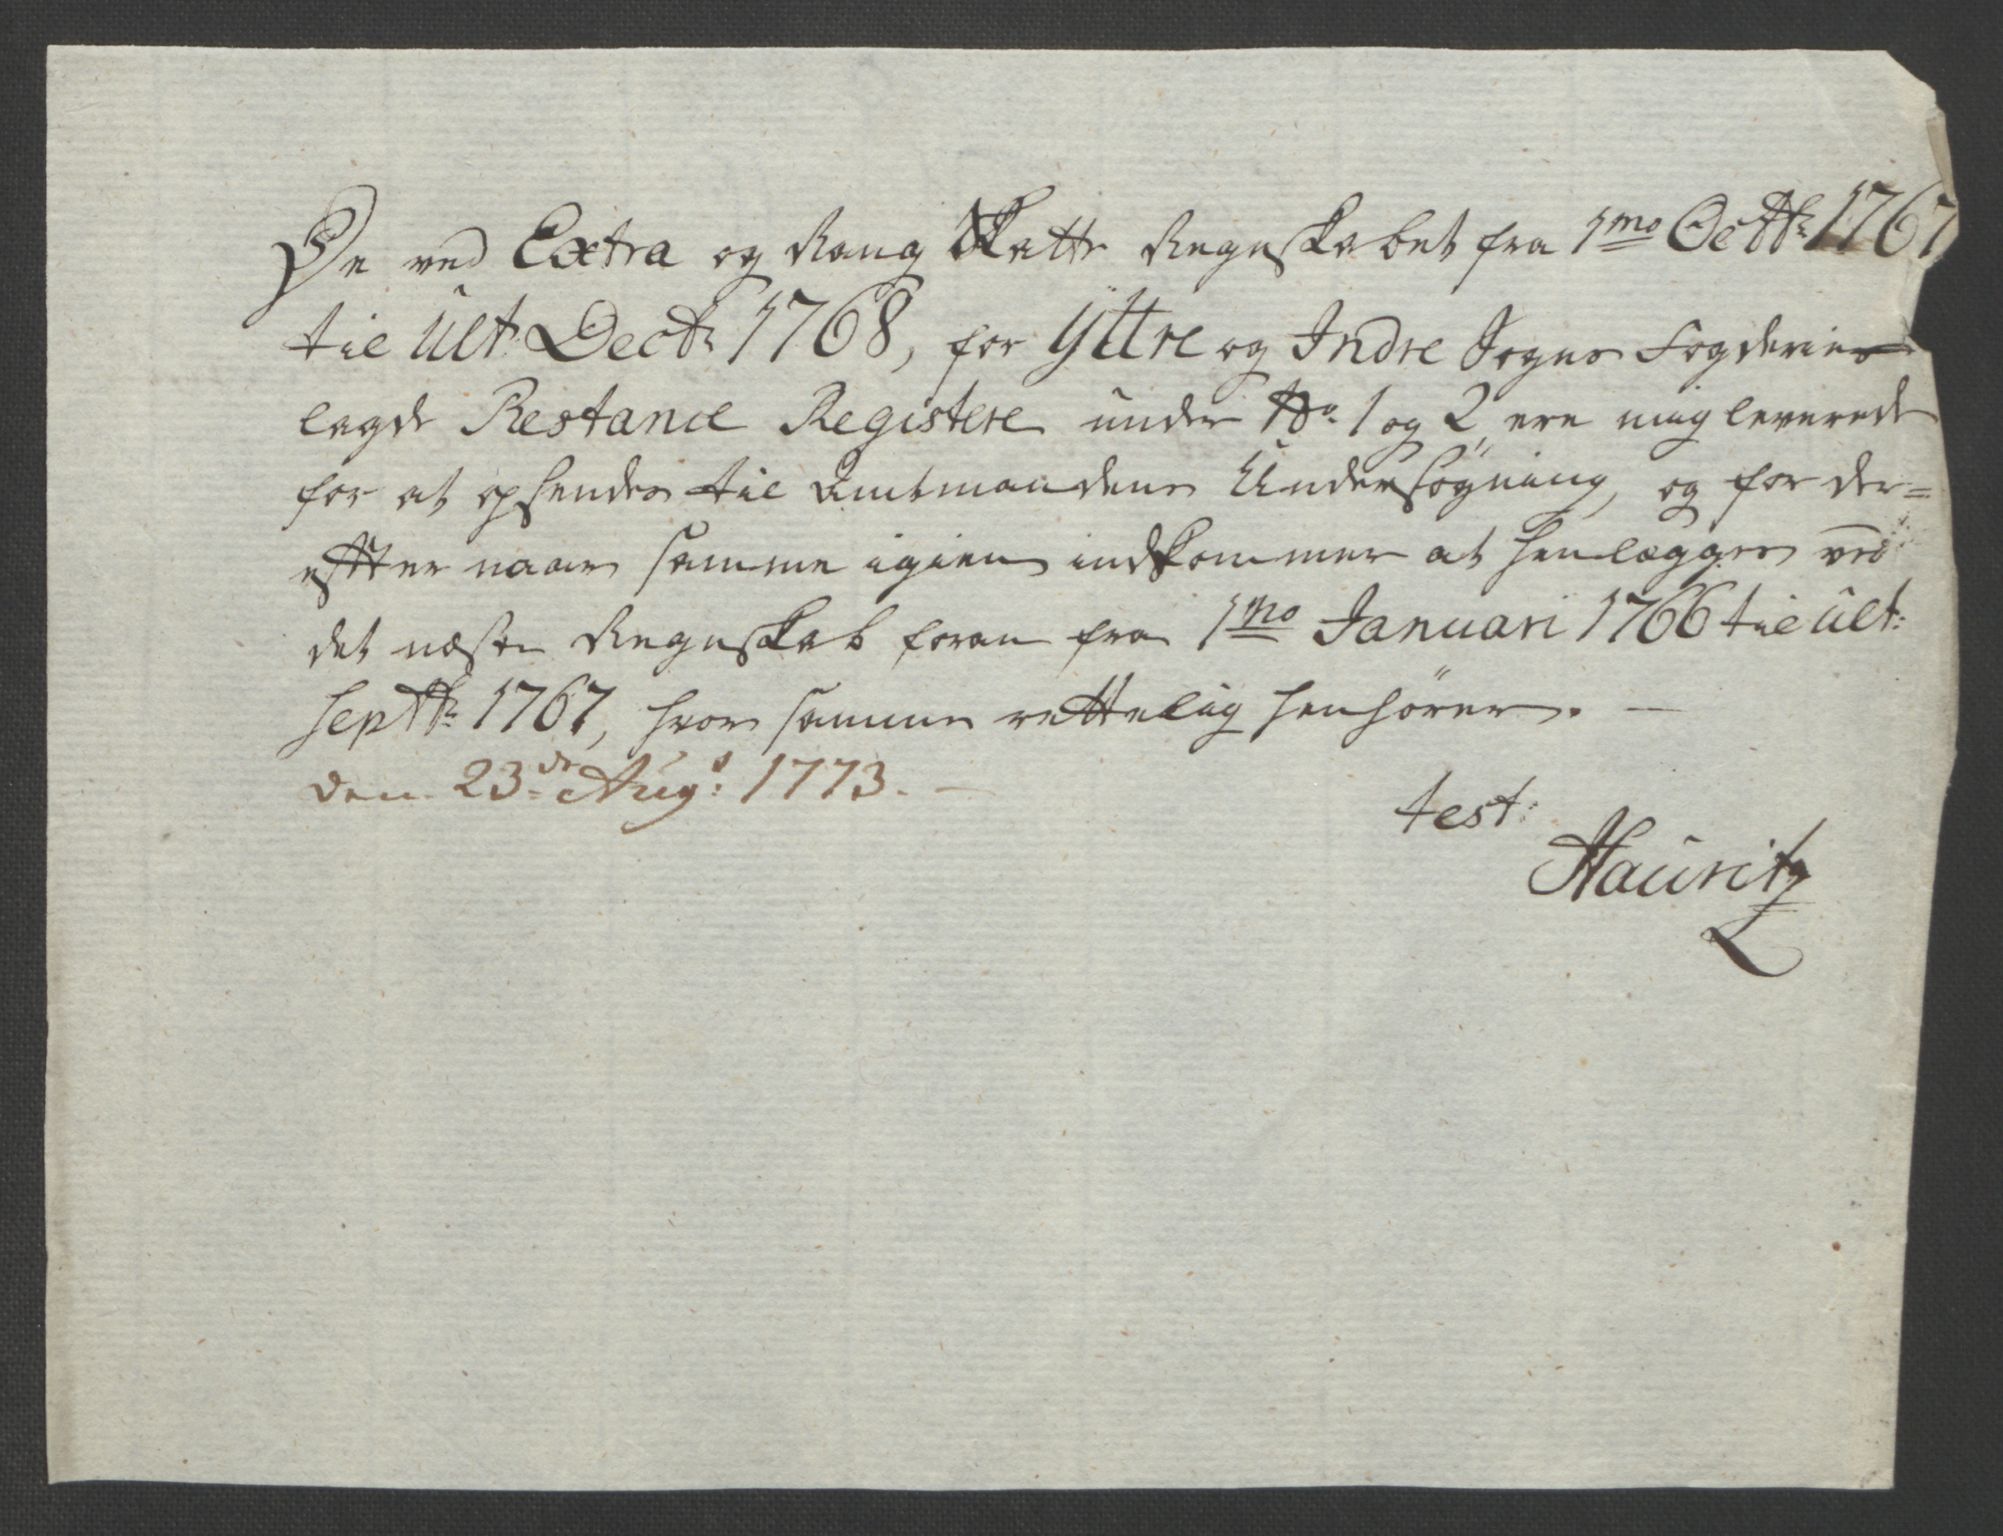 De ved Extra og Rang Skatte Regnskabet fra 1mo Octbr: 1767
til Ult: Decbr: 1768, for Yttre og Indre Sogns Fogderier
lagde Restance Registere under No: 1 og 2, ere mig leverede
for at opsendes til Amtmandens Undersøgning, og for der=
effter naar samme igien indkommer at henlægges ved
det næste Regnskab foran fra 1mo Januari 1766 til Ult:
Septbr: 1767, hvor samme rettelig henhører. —
den 23de Aug: 1773. —
test:
Hauritz